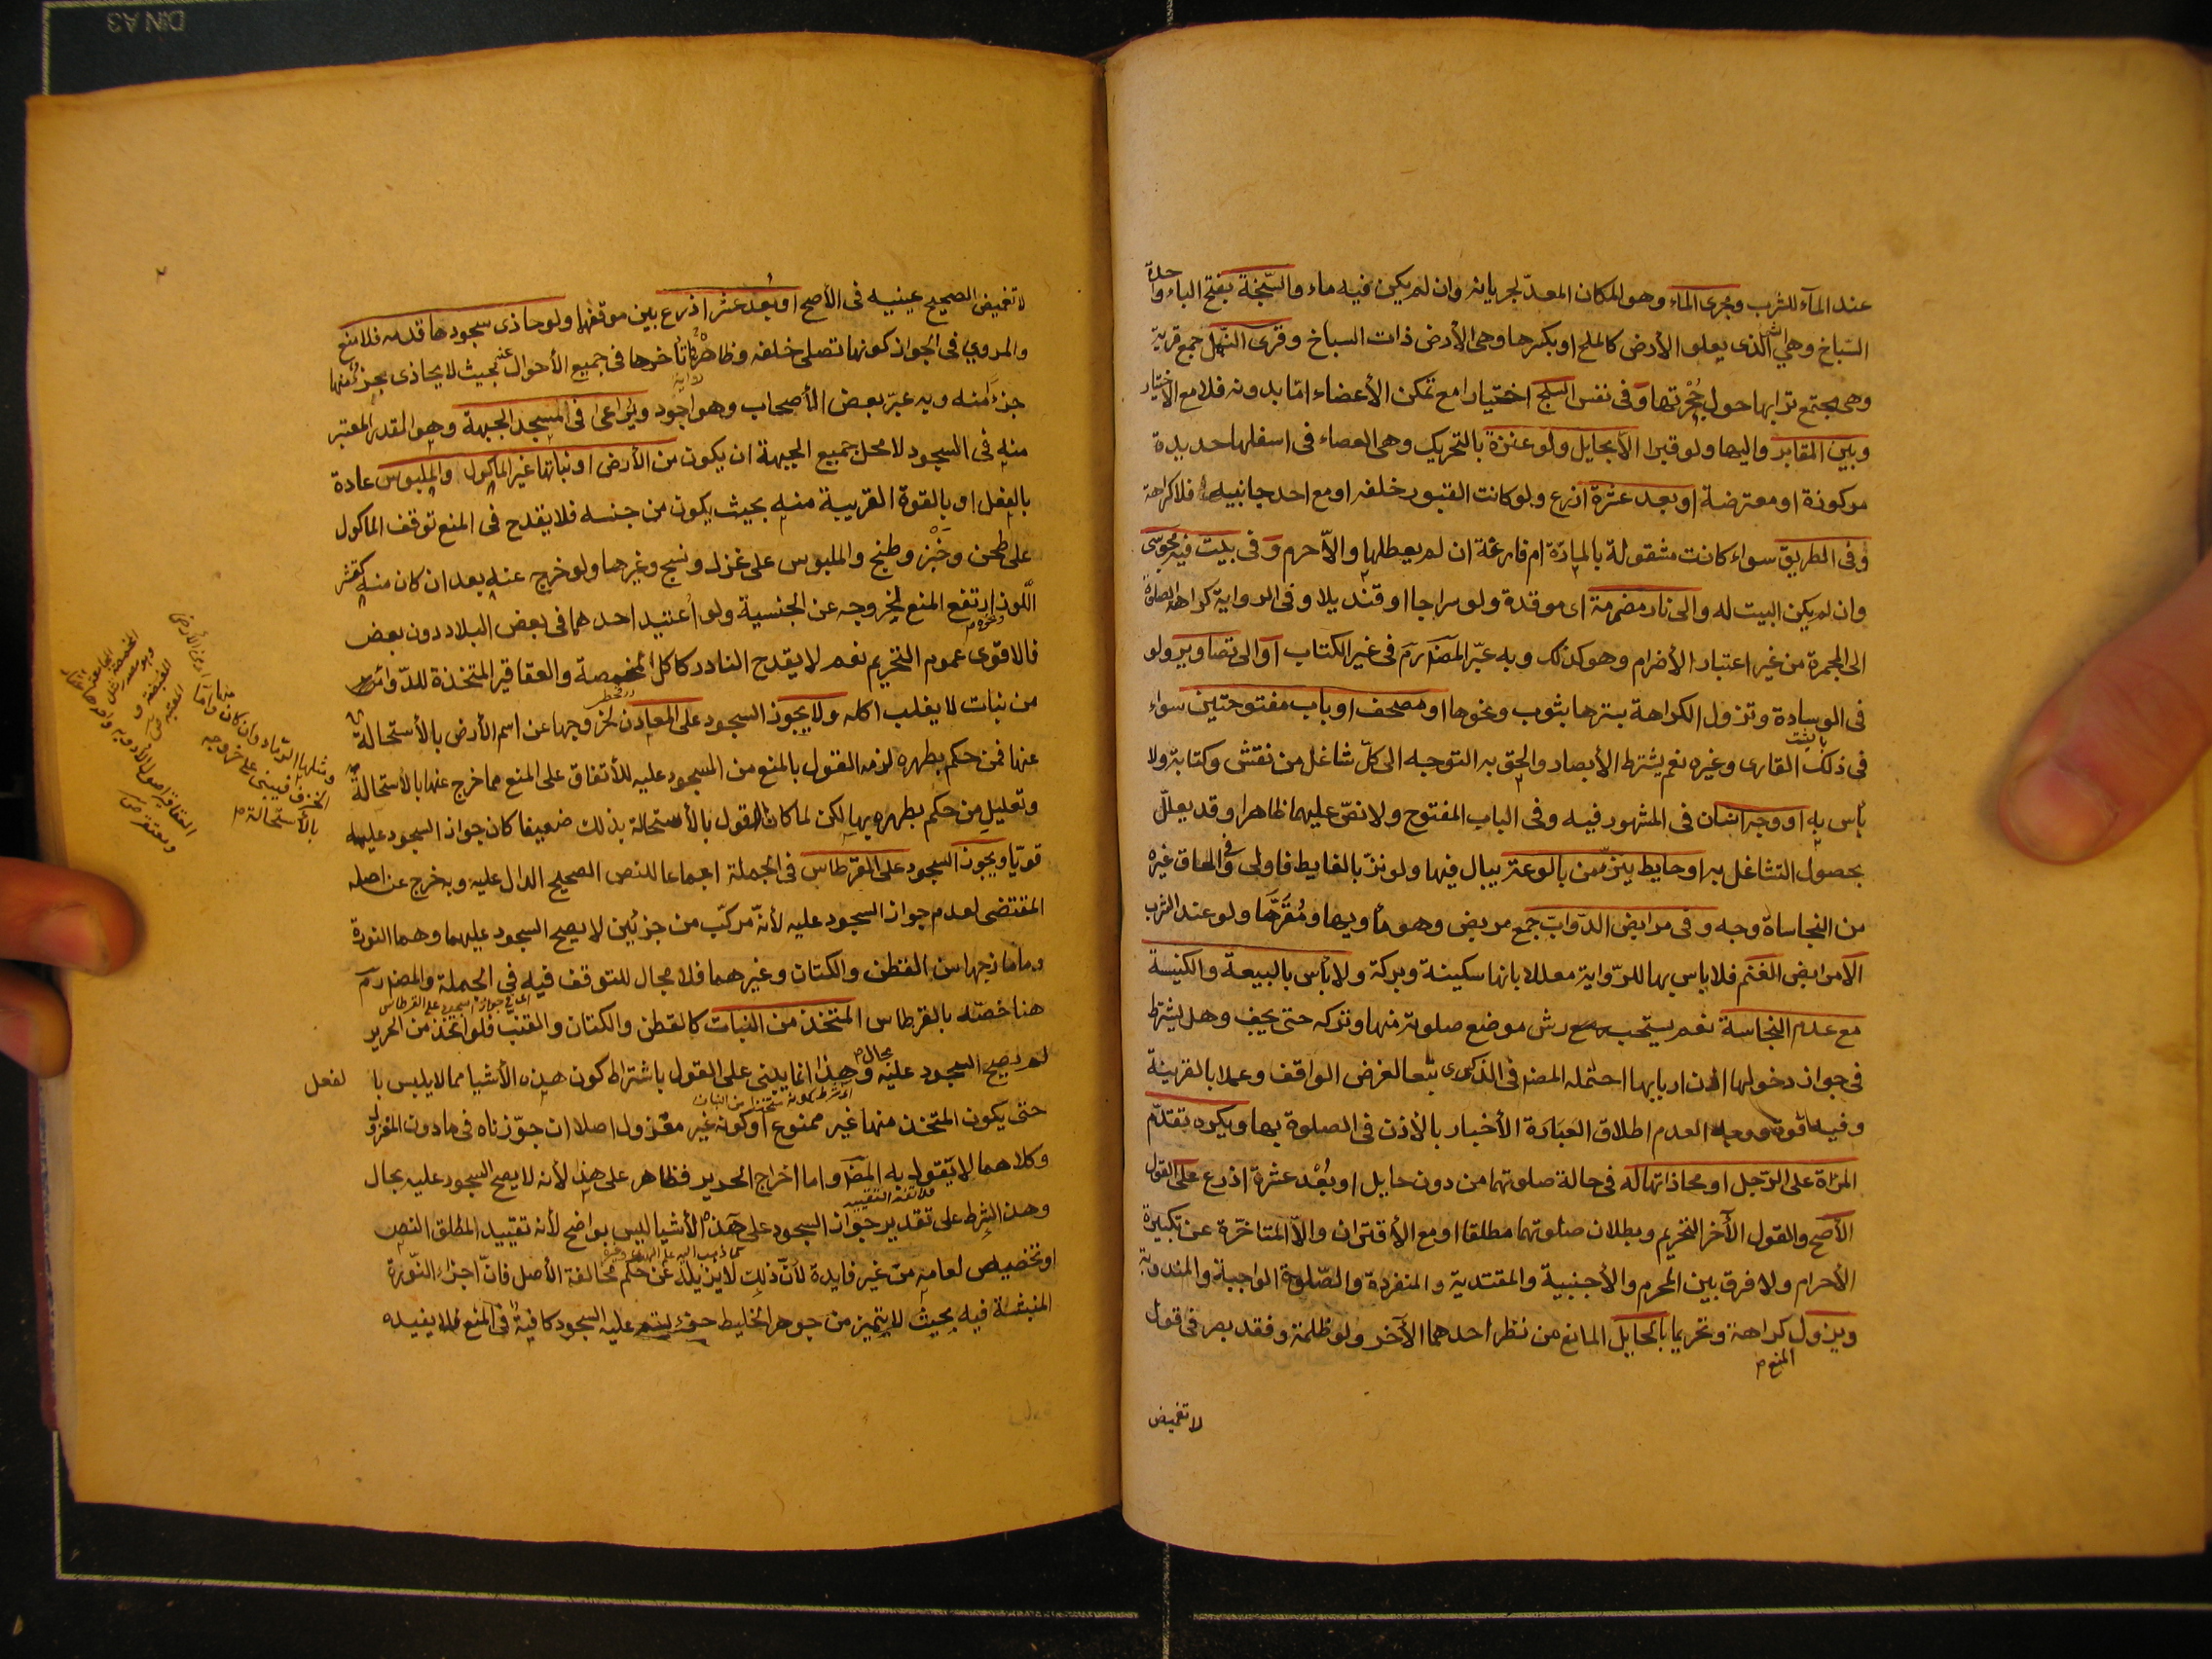 عند المآء للشرب ومجرى الماء وهو المكان المعدّ لجريانه وان لم يكن فيه ماء والسّبخة بفتح الباء واحدة
السّباخ وهي الشئ الذى يعلو الأرض كالملح او بكسرها وهى الأرض ذات السباخ وقرى النّمل جمع قرية
وهى مجتمع ترابها حول جُحْرتها وفى نفس الثلج اختيارا مع تمكن الأعضاء امّا بدونه فلا مع الاختيار
وبين المقابر واليها ولو قبرا الّا بحايل ولو عنزة بالتحريك وهى العصاء فى اسفلها حديدة
مركوزة او معترضة او بعد عشرة اذرع ولو كانت القبور خلفه او مع احد جانبيه فلا كراهة
وفى الطريق سواء كانت مشغولة بالمارّة ام فارغة ان لم يعطلها والّا حرم وفى بيت فيه مجوسى
وان لم يكن البيت له والى نار مضرمة اى موقدة ولو سراجا او قنديلا وفى الرواية كراهة الصلوة
الى المجمرة من غير اعتبار الأضرام وهو كذلك وبه عبّر المصنف ره فى غير الكتاب او الى تصاوير ولو
فى الوسادة وتزول الكراهة بسترها بثوب ونحوه او مصحف او باب مفتوحتين سواء
فى ذلك القارى وغيره نعم يشترط الأبصار والحق به التوجه الى كلّ شاغل من نقش وكتابة ولا
بأس به او وجه انسان فى المشهور فيه وفى الباب المفتوح ولا نصّ عليهما ظاهرا وقد يعلّل
بحصول التشاغل به او حايط ينزّ من بالوعة يبال فيها ولو نزّ بالغايط فاولى وفى الحاق غيره
من النجاسات وجه وفى مرابض الدّوابّ جمع مربض وهو مأويها ومُقَرّها ولو عند الشرب
الّا مرابض الغنم فلا بأس بها للرّواية معللا بانها سكينة وبركة ولا بأس بالبيعة والكنيسة
مع عدم النجاسة نعم يستحب رش موضع صلوته منها وتركه حتى يجف وهل يشترط
فى جواز دخولها اذن اربابها احتمله المصنف فى الذكرى تبعا لغرض الواقف وعملا بالقرينة
وفيه قوة ووجه العدم اطلاق الأخبار بالأذن فى الصلوة بها ويكره تقدّم
المرأة على الرّجل او محاذاتها له فى حالة صلوتهما من دون حايل او بُعْد عشرة اذرع على القول
الأصح والقول الآخر التحريم وبطلان صلوتهما مطلقا او مع الأقتران والّا المتأخرة عن تكبيرة
الأحرام ولا فرق بين المحرم والأجنبية والمقتدية والمنفردة والصّلوة الواجبة والمندوبة
ويزول كراهة وتحريما بالحايل المانع من نظر احدهما الآخر ولو ظلمة وفقد بصر فى قول
المنع
لا تغميض
لا تغميض الصحيح عينيه فى الأصح او بُعد عشر اذرع بين موقفهما ولو حاذى سجودها قدمه فلا منع
والمروي فى الجواز كونها تصلى خلفه وظاهره تأخرها فى جميع الأحوال عنه بحيث لا يحاذى بجزء منها
جزءَ منه وبه عبّر بعض الأصحاب وهو اجود ويراعى فى المسجد الجبهة وهو القدر المعتبر
منه فى السجود لا محل جميع الجبهة ان يكون من الأرض او نباتها غير المأكول والملبوس عادة
بالفعل او بالقوة القريبة منه بحيث يكون من جنسه فلا يقدح فى المنع توقف الماكول
على طحن وخَبْز وطبخ والملبوس على غزل ونسج وغيرهما ولو خرج عنه بعد ان كان منه كقشر
اللّوز ارتفع المنع لخروجه عن الجنسية ولو اعتيد احدهما فى بعض البلاد دون بعض
فالاقوى عموم التحريم نعم لا يقدح النادر كاكل المخمصة والعقاقير المتخذة للدّواء
من نبات لا يغلب اكله ولا يجوز السجود على المعادن لخروجها عن اسم الأرض بالأستحالة
عنها فمن حكم بطهره لزمه القول بالمنع من السجود عليه للأتفاق على المنع مما خرج عنها بالأستحالة
وتعليل من حكم بطهره بها لكن لما كان القول بالأستحالة بذلك ضعيفا كان جواز السجود عليه
قويّا ويجوز السجود على القرطاس فى الجملة اجماعا للنص الصحيح الدال عليه وبه خرج عن اصله
المقتضى لعدم جواز السجود عليه لأنه مركّب من جزئين لا يصح السجود عليهما وهما النورة
وما مازجها من القطن والكتان وغيرهما فلا مجال للتوقف فيه فى الجملة والمصنف ره
هنا خصّه بالقرطاس المتخذ من النبات كالقطن والكتان والقنّب فلو اتخذ من الحرير
لم يصح السجود عليه وهذا انما يبنى على القول باشتراط كون هذه الأشيا مما لا يلبس با لفعل
حتى يكون المتخذ منها غير ممنوع او كونه غير مغزول اصلا ان جوّزناه فى ما دون المغزول
وكلاهما لا يقول به المصنف واما اخراج الحرير فظاهر على هذا لأنه لا يصح السجود عليه بحال
وهذا الشرط على تقدير جواز السجود على هذه الأشيا ليس بواضح لأنه تقييد المطلق النص
او تخصيص لعامه من غير فايدة لأنّ ذلك لا يزيله عن حكم مخالفة الأصل فانّ اجزاء النّورة
المنبثة فيه بحيث لا يتميز من جوهر الخليط حتى يتم عليه السجود كافية فى المنع فلا يفيده
ومثلها الرّماد وان كان منها واما
الخزف فيبنى على خروجه
بالأستحالة